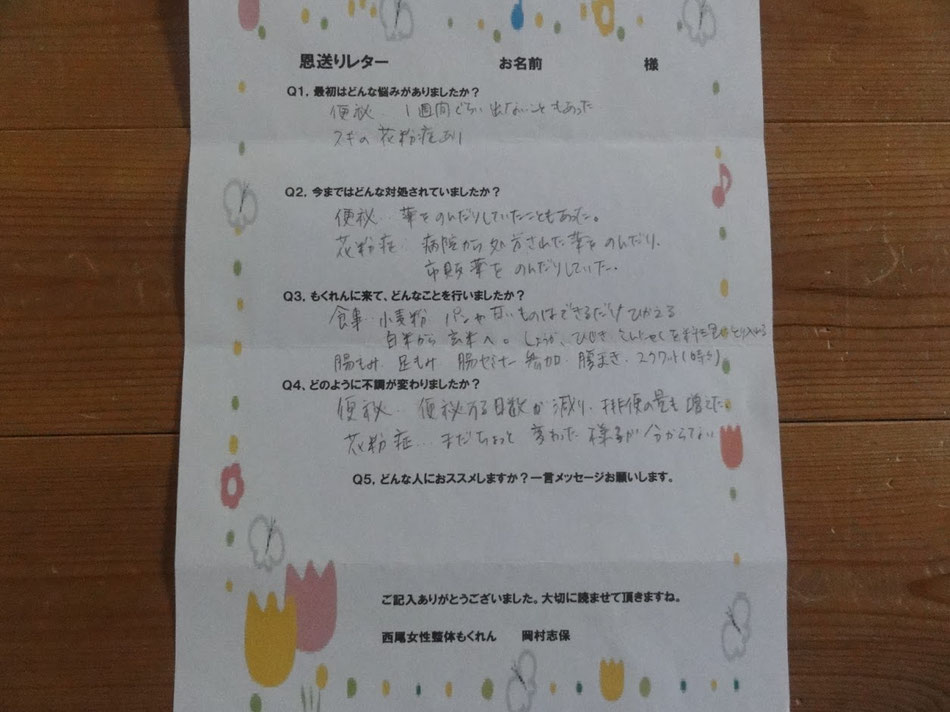 恩送りレター　お名前　様
Q1, 最初はどんな悩みがありましたか？
便秘‥１週間ぐらい出ないこともあった
スギの花粉症あり
Q2, 今まではどんな対処されていましたか？
便秘‥薬をのんだりしていたこともあった。
花粉症‥病院から処方された薬をのんだり、
市販薬をのんだりしていた。
Q3, もくれんに来て、どんなことを行いましたか？
食事‥小麦粉 パンや甘いものはできるだけひかえる
白米から玄米へ。しょうが、ひじき、こんにゃくを とり入れる
腸もみ、足もみ、腸セミナー参加、腰まき、スクワット(時々)
Q4, どのように不調が変わりましたか？
便秘‥便秘する日数が減り、排便の量も増えた。
花粉症…まだちょっと変わった様子が分からない
Q5, どんな人におススメしますか？一言メッセージお願いします。
ご記入ありがとうございました。大切に読ませて頂きますね。
西尾女性整体もくれん　岡村志保